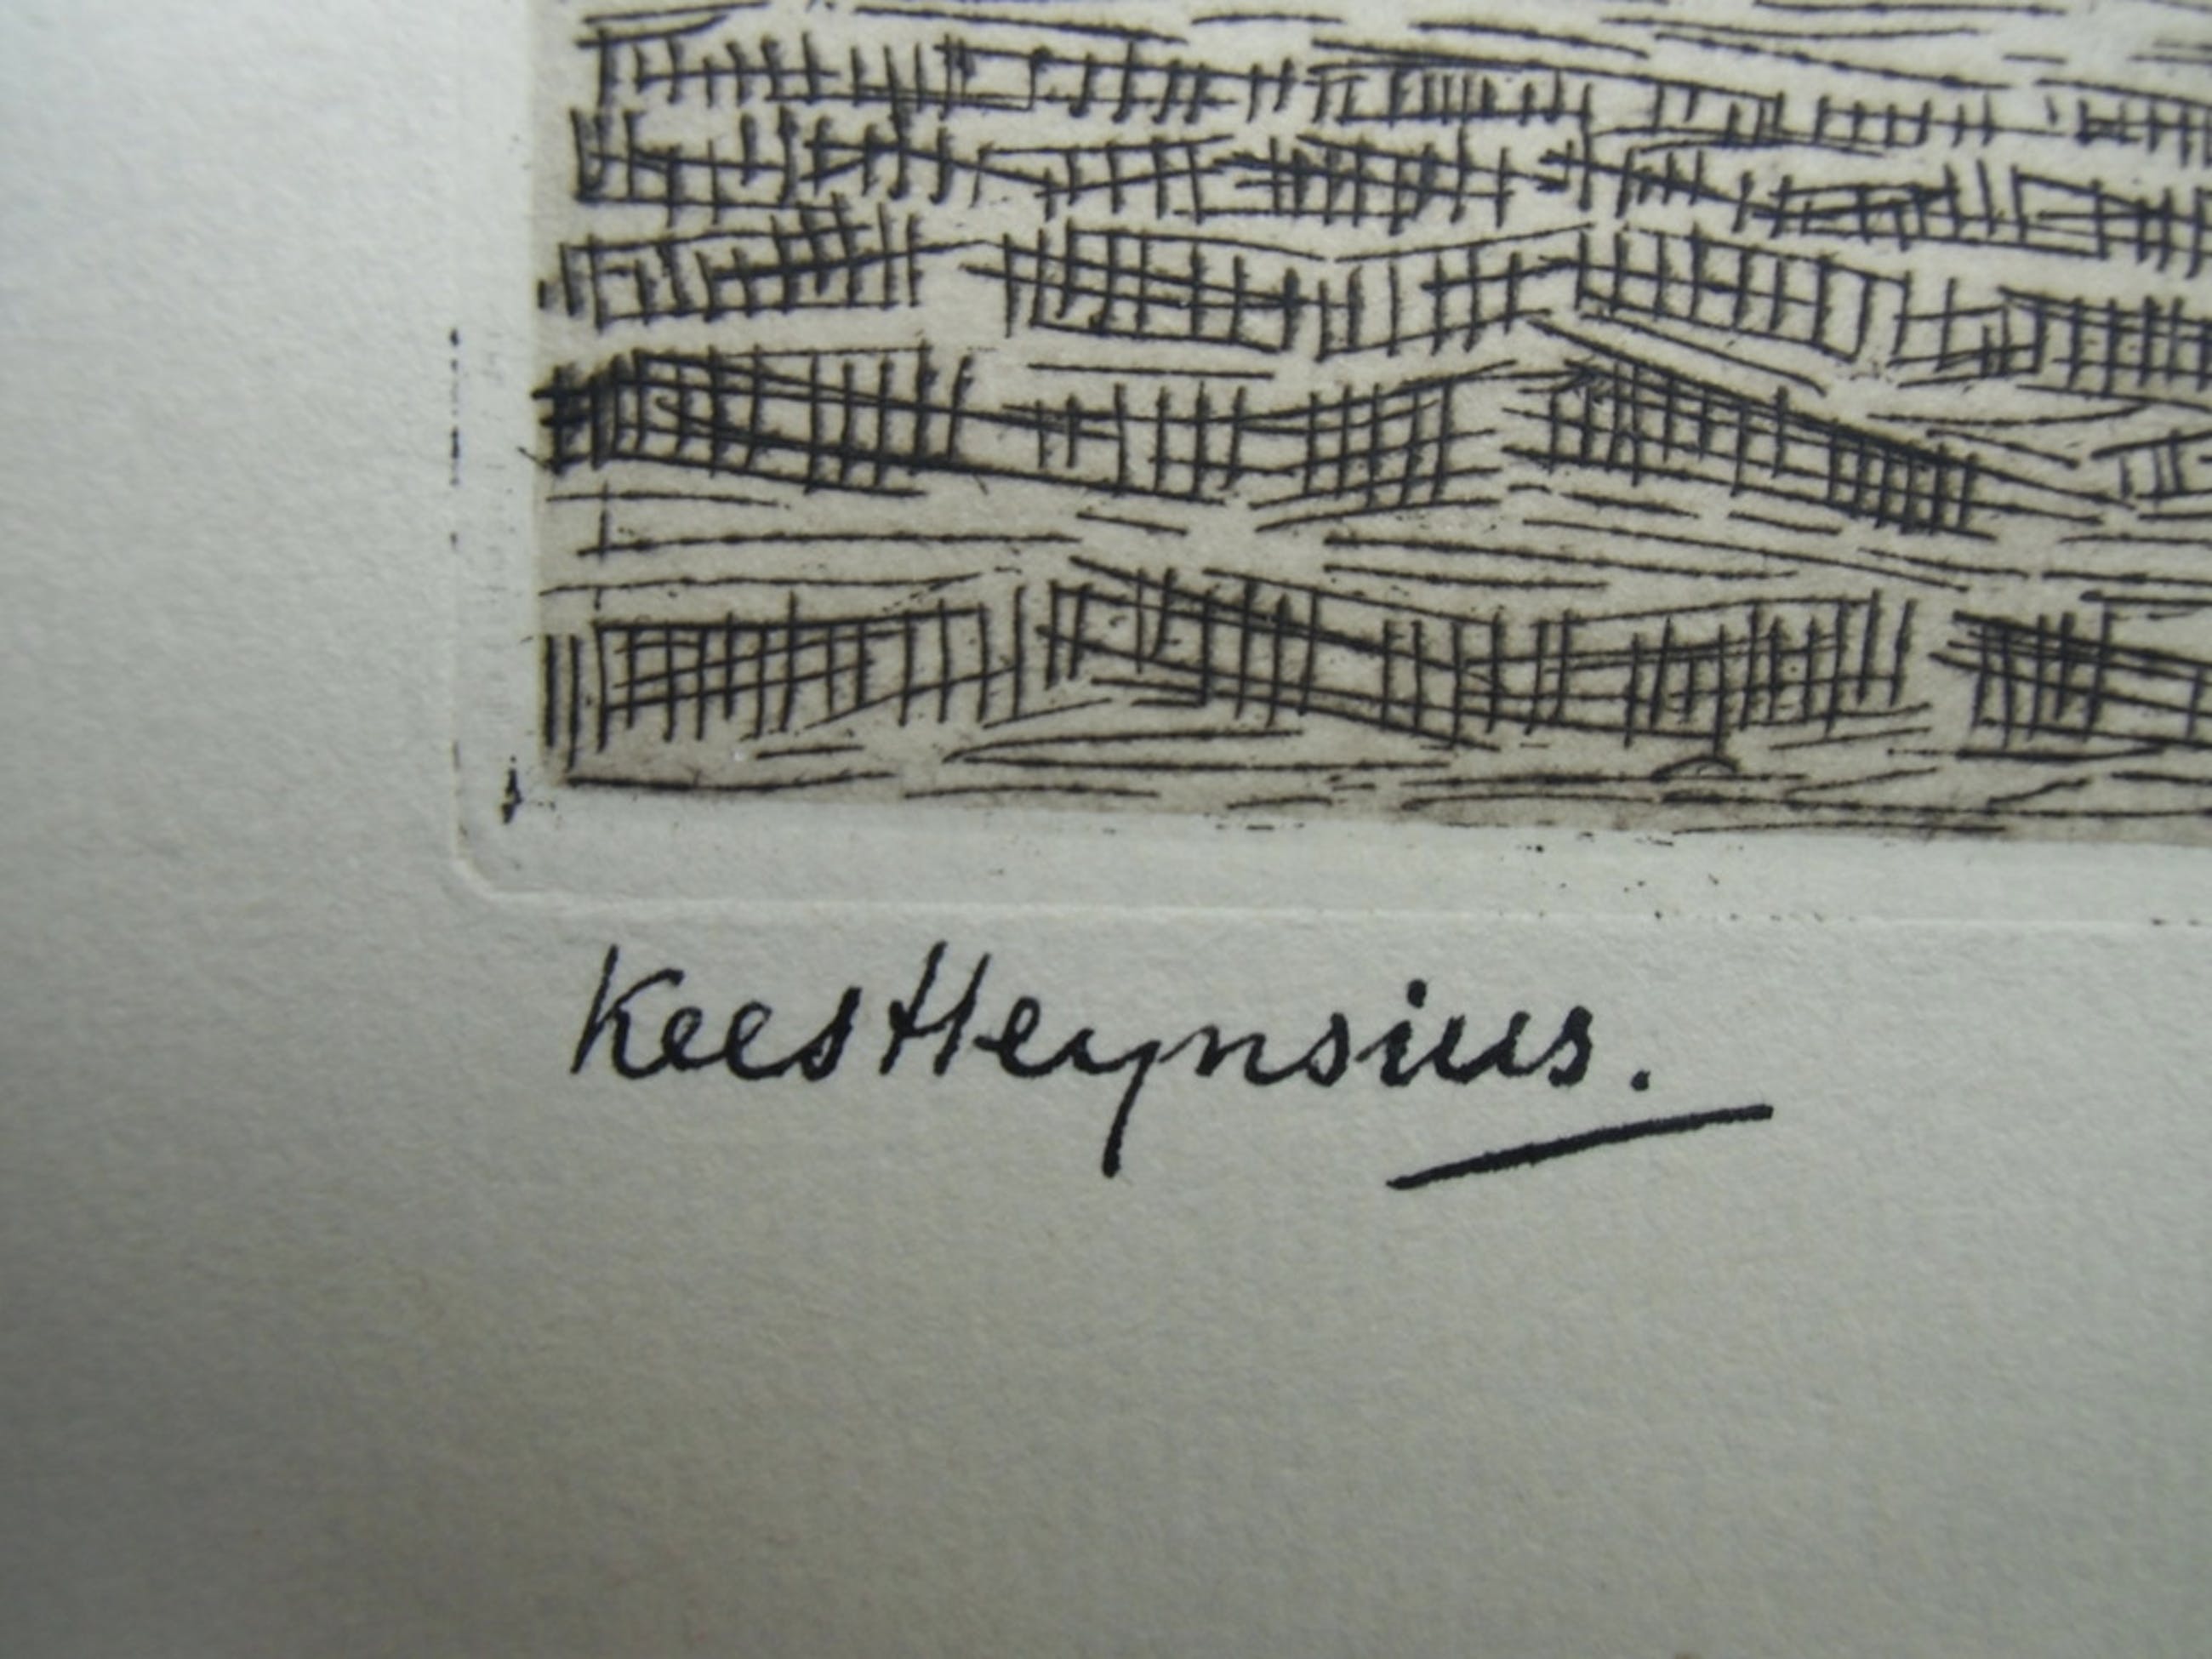 Kees Heynsius.